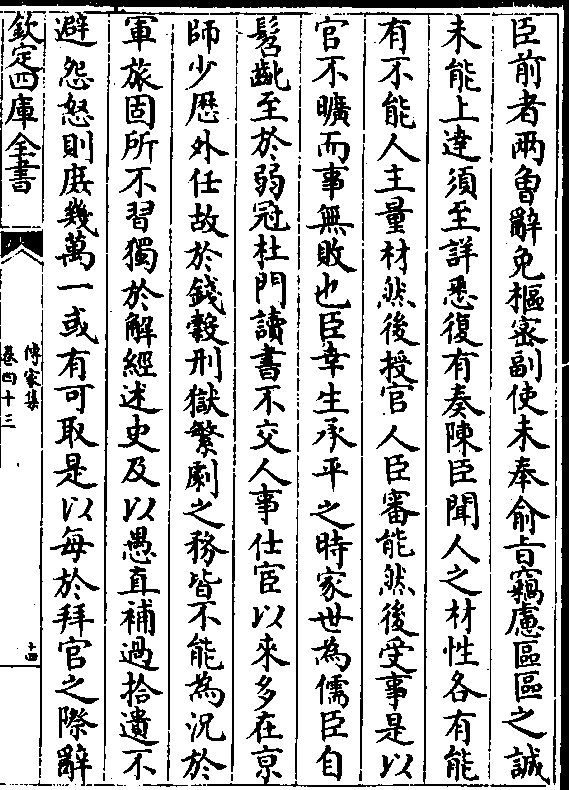 臣前者兩曾辭免樞密副使未奉俞旨竊慮區區之誠
未能上達須至詳悉復有奏陳臣聞人之材性各有能
有不能人主量材然後授官人臣審能然後受事是以
官不曠而事無敗也臣幸生承平之時家世為儒臣自
髫齔至於弱冠杜門讀書不交人事仕宦以來多在京
師少歴外任故於錢糓刑獄繁劇之務皆不能為況於
軍旅固所不習獨於解經述史及以愚直補過拾遺不
避怨怒則庶幾萬一或有可取是以每於拜官之際辭
欽定四庫全書
傳家集
卷四十三
十四